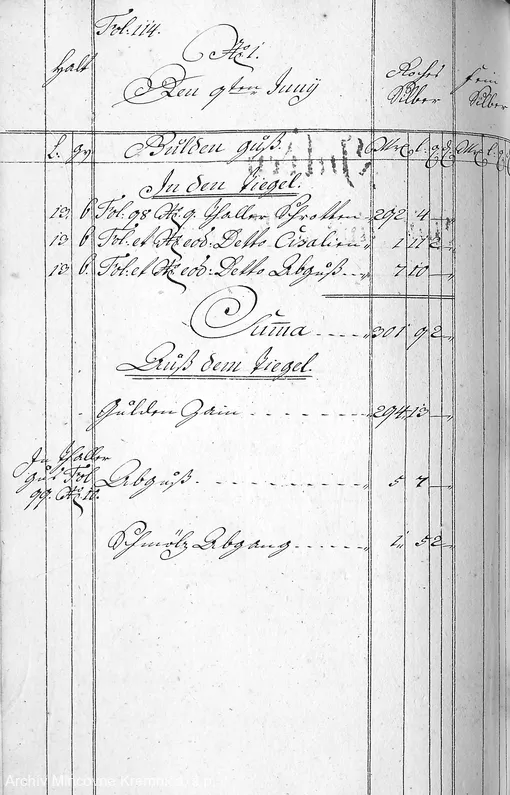 Fol: 114.
No. 1.
Halt
Den 9ten Juny
Roches Silber
fein Silber
L. gr.
Gulden guß.
Mr. l. q. d.
Mr. l. q.
In den Tiegel.
13 6 Fol: 98 No. 9. Thaller Schrotten „ 292 4 —
13 6 Fol: et No. eod: Detto Cisalien „ 1 11 2
13 6 Fol: et No. eod: Detto Abguß „ 7 10 —
Summa „ 301 9 2
Auß dem Tiegel.
Gulden Zain „ 294 13 —
In Thaller
guß Fol
99. No. 10.
Abguß „ 5 7 —
Schmölz Abgang „ 1 5 2
Archiv Mincovne Kremnica